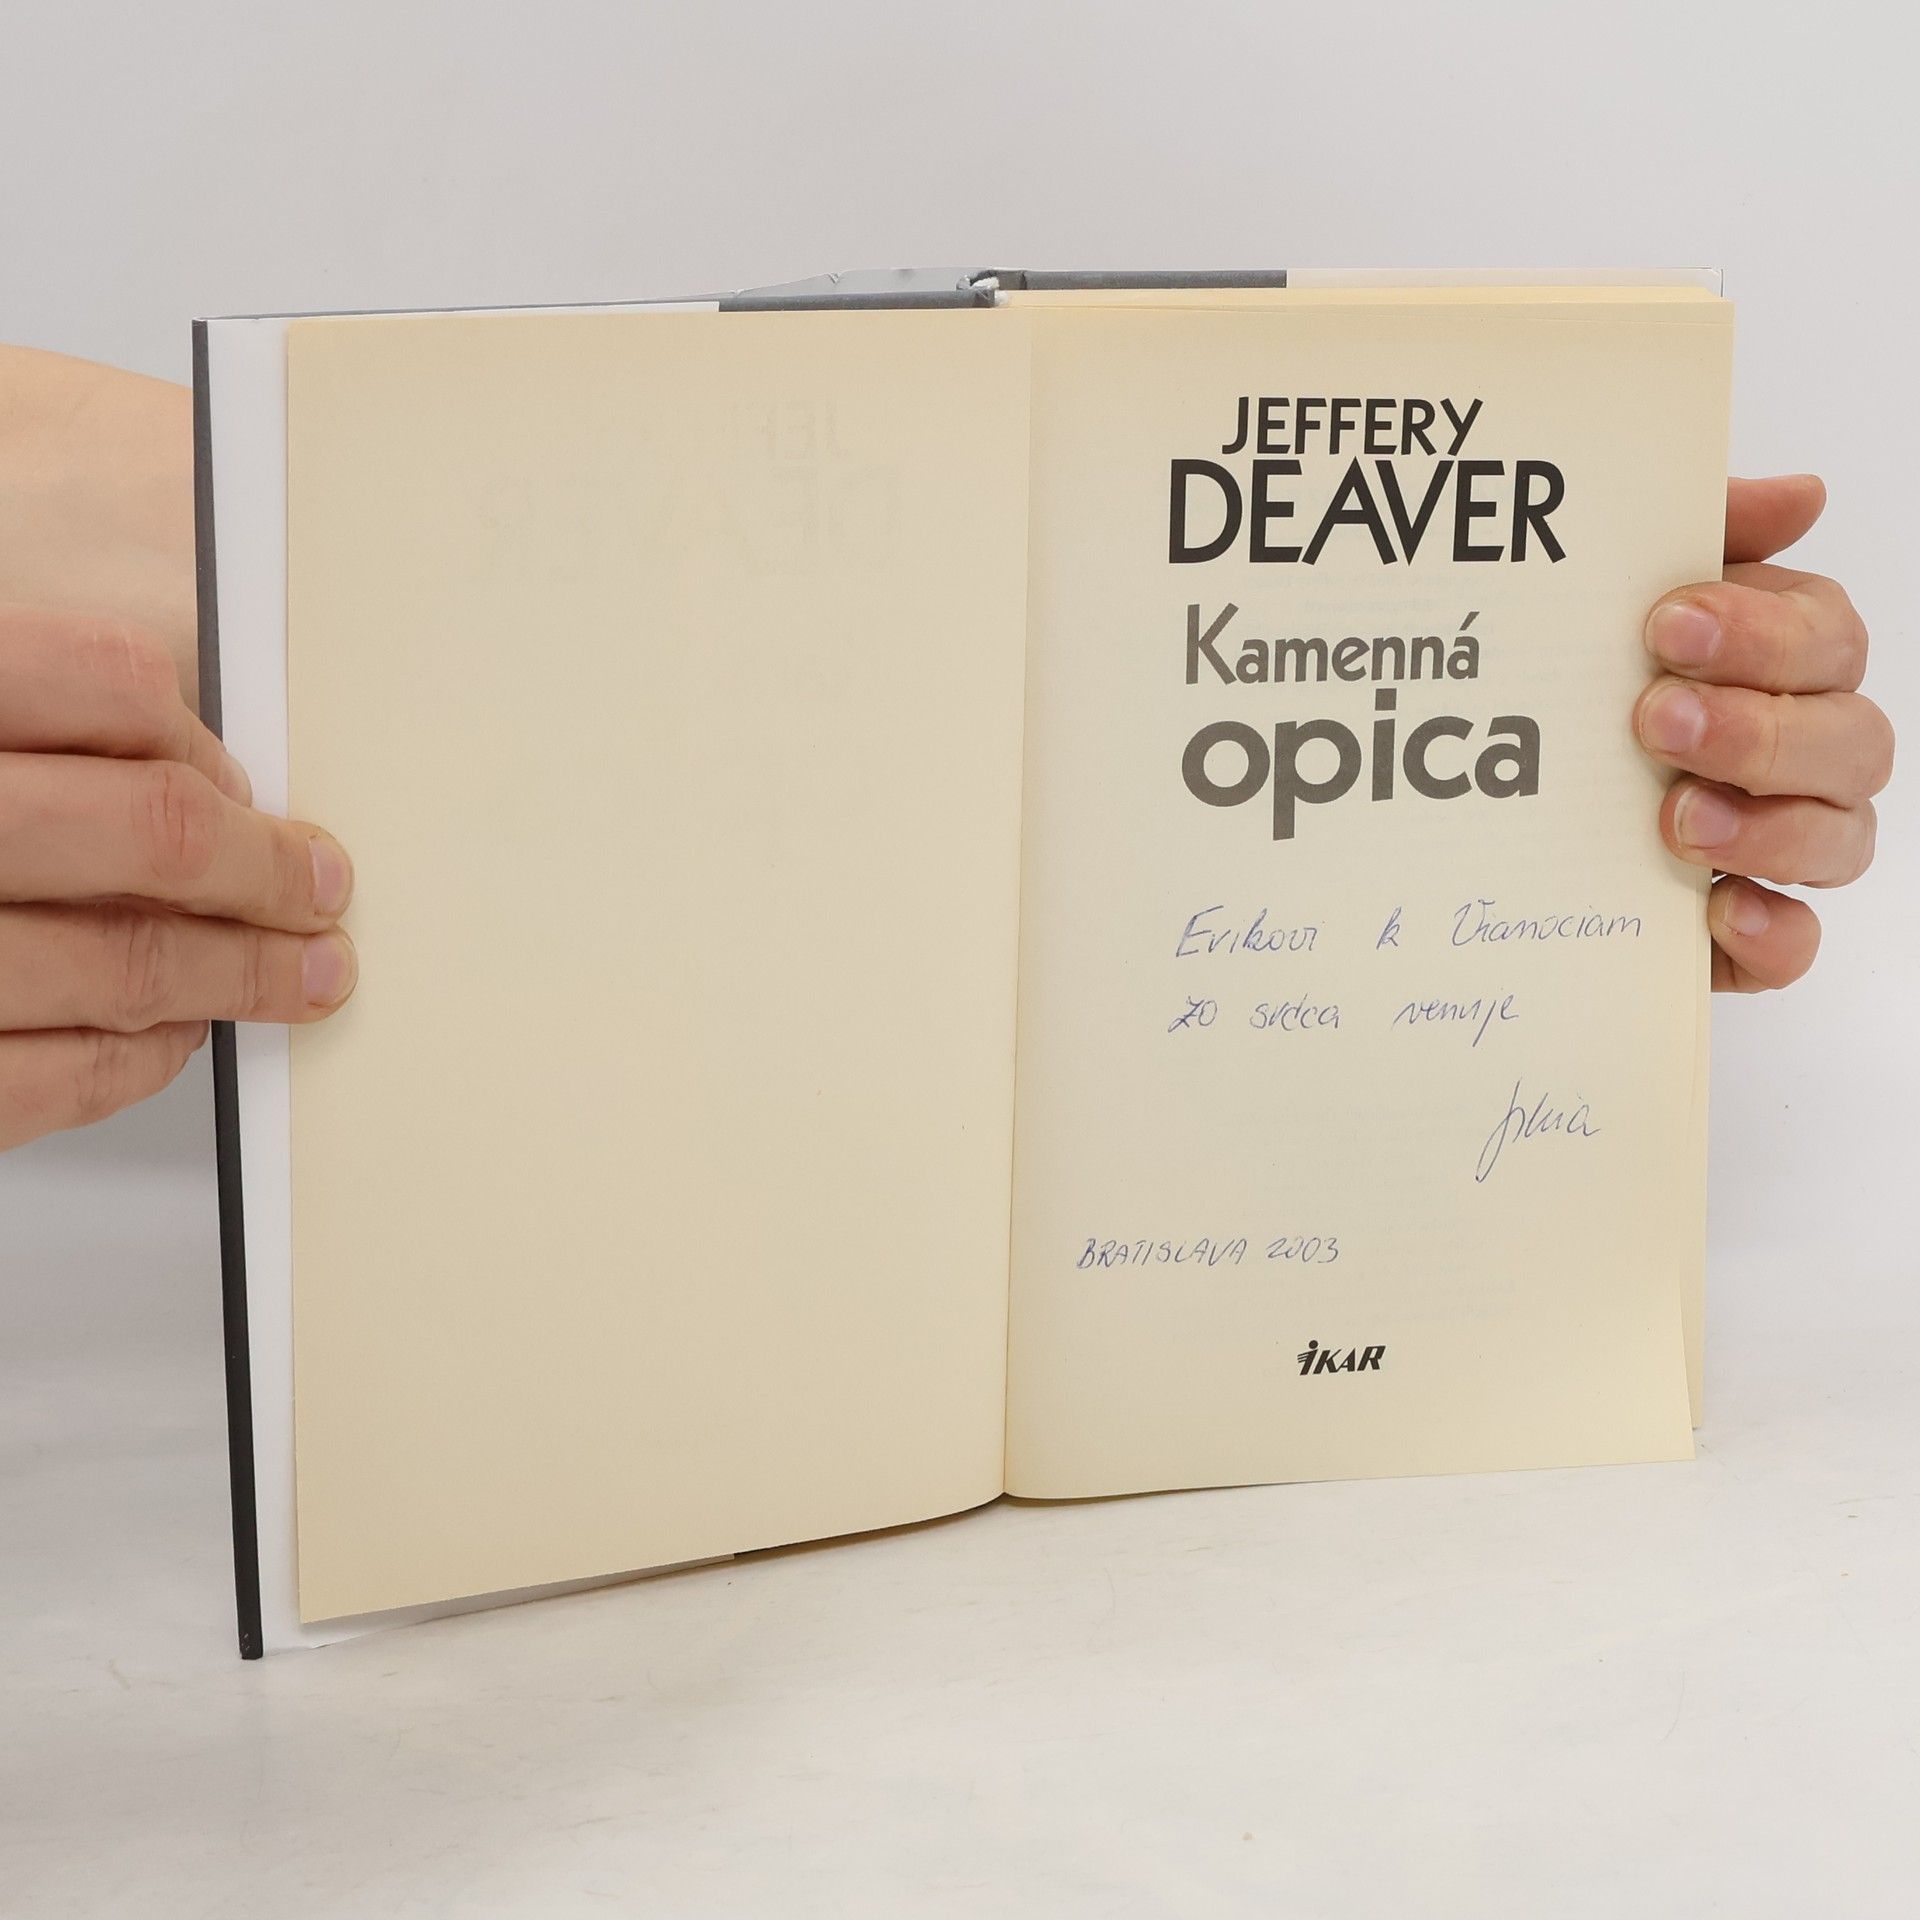 JEFFERY
DEAVER
Kamenná
opica
Erikovi k Vianociam
zo srdca venuje
BRATISLAVA 2003
iKAR